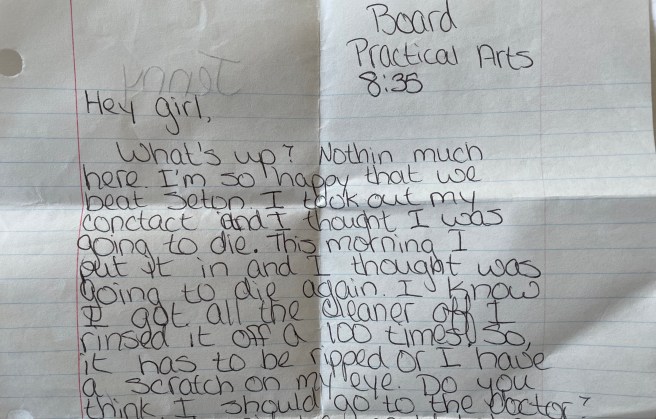 Board
Practical Arts
8:35
Hey girl,
What's up? Nothin much
here. I'm so happy that we
beat Seton. I took out my
conctact and I thought I was
going to die. This morning I
put it in and I thought was
going to die again. I know
I got all the cleaner off I
rinsed it off a 100 times! So,
it has to be ripped or I have
a scratch on my eye. Do you
think I should go to the doctor?